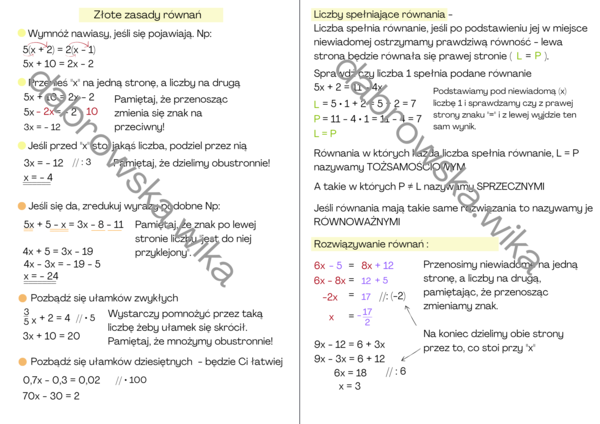 Złote zasady równań
Wymnóż nawiasy, jeśli się pojawiają. Np:
5(x + 2) = 2(x - 1)
5x + 10 = 2x - 2
Przenieś "x" na jedną stronę, a liczby na drugą
5x + 10 = 2x - 2
5x - 2x = - 2 - 10
3x = - 12
Pamiętaj, że przenosząc
zmienia się znak na
przeciwny!
Jeśli przed "x" stoi jakąś liczba, podziel przez nią
3x = - 12 // : 3 Pamiętaj, że dzielimy obustronnie!
x = - 4
Jeśli się da, zredukuj wyrazy podobne Np:
5x + 5 - x = 3x - 8 - 11
4x + 5 = 3x - 19
4x - 3x = - 19 - 5
x = - 24
Pamiętaj, że znak po lewej
stronie liczby "jest do niej
przyklejony".
Pozbądź się ułamków zwykłych
3/5 x + 2 = 4 // • 5
3x + 10 = 20
Wystarczy pomnożyć przez taką
liczbę żeby ułamek się skrócił.
Pamiętaj, że mnożymy obustronnie!
Pozbądź się ułamków dziesiętnych - będzie Ci łatwiej
0,7x - 0,3 = 0,02 // • 100
70x - 30 = 2
Liczby spełniające równania -
Liczba spełnia równanie, jeśli po podstawieniu jej w miejsce
niewiadomej ostrzymamy prawdziwą równość - lewa
strona będzie równała się prawej stronie ( L = P ).
Sprawdź czy liczba 1 spełnia podane równanie
5x + 2 = 11 - 4x
L = 5 • 1 + 2 = 5 + 2 = 7
P = 11 - 4 • 1 = 11 - 4 = 7
L = P
Podstawiamy pod niewiadomą (x)
liczbę 1 i sprawdzamy czy z prawej
strony znaku "=" i z lewej wyjdzie ten
sam wynik.
Równania w których każda liczba spełnia równanie, L = P
nazywamy TOŻSAMOŚCIOWYM
A takie w których P ≠ L nazywamy SPRZECZNYMI
Jeśli równania mają takie same rozwiązania to nazywamy je
RÓWNOWAŻNYMI
Rozwiązywanie równań :
6x - 5 = 8x + 12
6x - 8x = 12 + 5
-2x = 17 //: (-2)
x = -17/2
Przenosimy niewiadome na jedną
stronę, a liczby na drugą,
pamiętając, że przenosząc
zmieniamy znak.
Na koniec dzielimy obie strony
przez to, co stoi przy "x"
9x - 12 = 6 + 3x
9x - 3x = 6 + 12
6x = 18 // : 6
x = 3
dabrowska.wika
dabrowska.wika